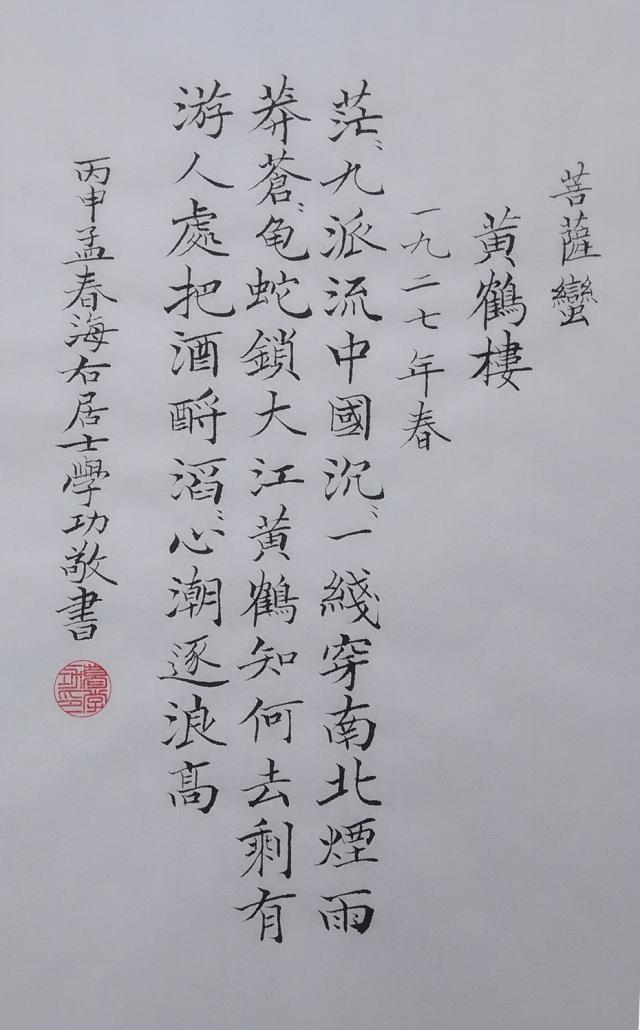 菩薩蠻
黃鶴樓
一九二七年春
茫〻九派流中國沉〻一綫穿南北煙雨
莽蒼〻龟蛇鎖大江黃鶴知何去剩有
游人處把酒酹滔〻心潮逐浪高
丙申孟春海右居士學功敬書